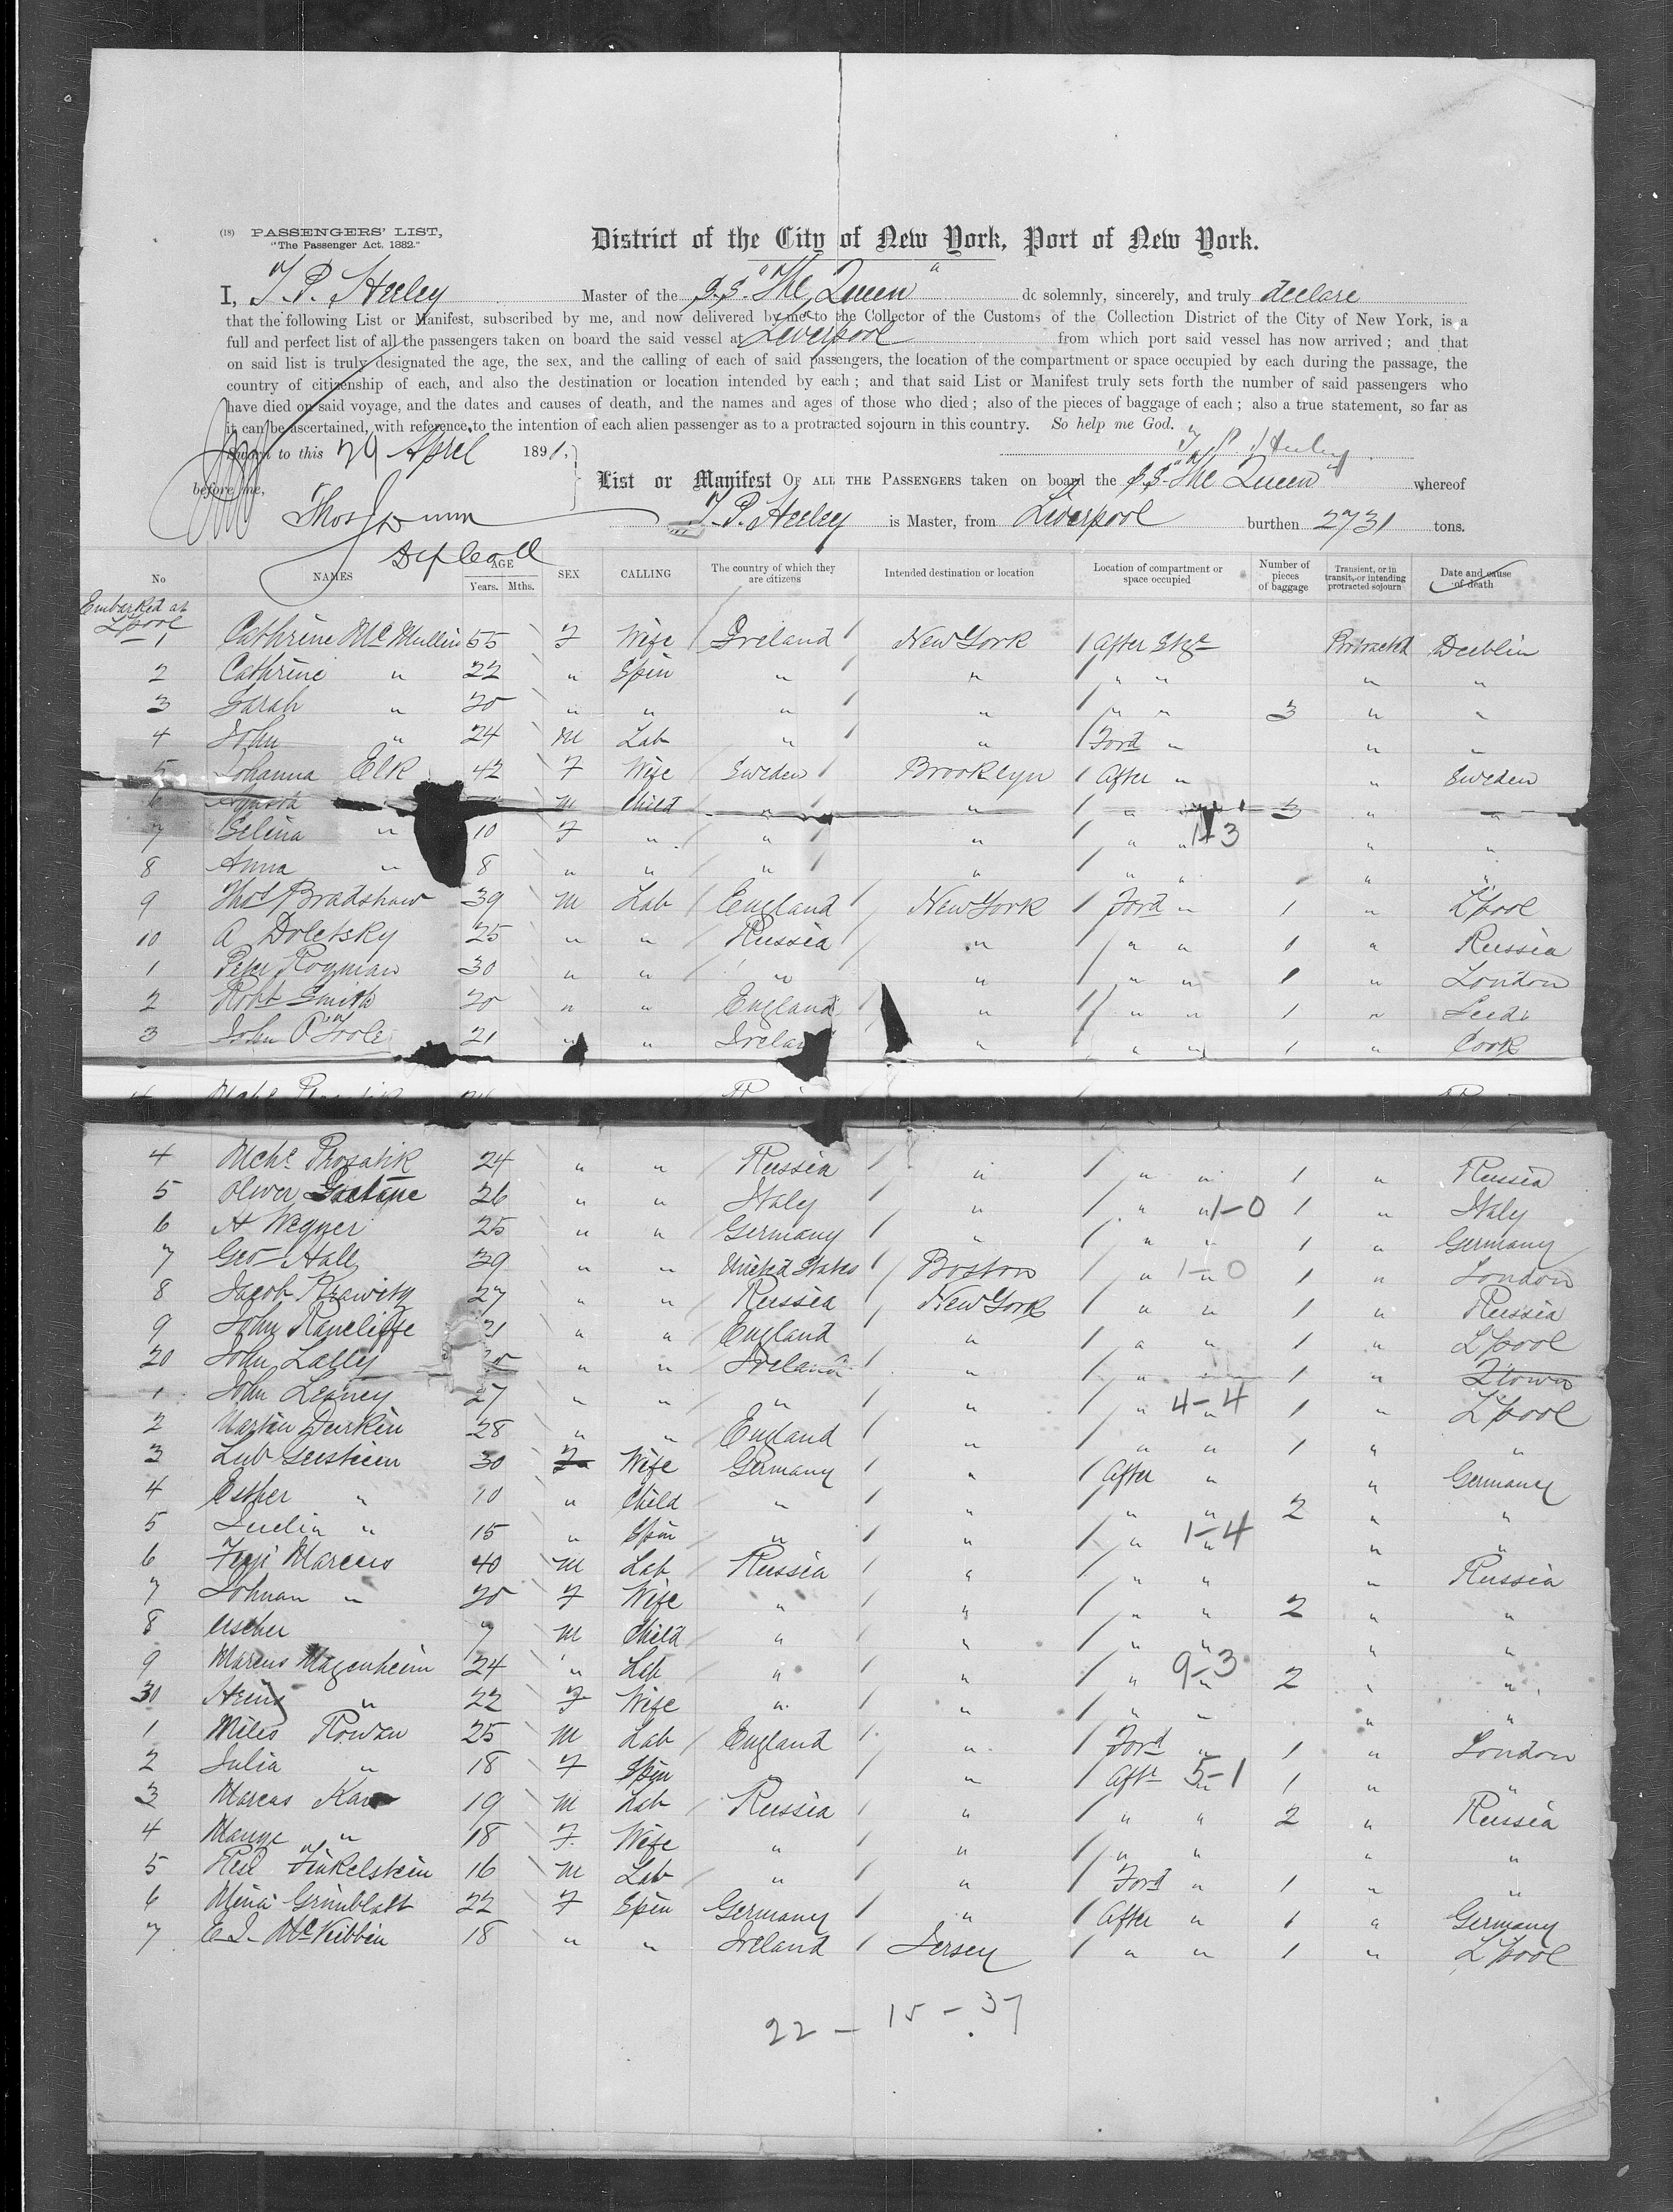 (18) PASSENGERS' LIST,
"The Passenger Act. 1882."
District of the City of New York, Port of New York.
I, T. P. Heeley Master of the S.S. "The Queen" do solemnly, sincerely, and truly declare
that the following List or Manifest, subscribed by me, and now delivered by me to the Collector of the Customs of the Collection District of the City of New York, is a
full and perfect list of all the passengers taken on board the said vessel at Liverpool from which port said vessel has now arrived; and that
on said list is truly designated the age, the sex, and the calling of each of said passengers, the location of the compartment or space occupied by each during the passage, the
country of citizenship of each, and also the destination or location intended by each; and that said List or Manifest truly sets forth the number of said passengers who
have died on said voyage, and the dates and causes of death, and the names and ages of those who died; also of the pieces of baggage of each; also a true statement, so far as
it can be ascertained, with reference to the intention of each alien passenger as to a protracted sojourn in this country. So help me God.
Sworn to this 29 April 1891, T. P. Heeley
before me,
List or Manifest OF ALL THE PASSENGERS taken on board the S.S. "The Queen" whereof
Thos
T. P. Heeley is Master, from Liverpool burthen 2731 tons.
Dep Coll
No NAMES AGE Years. Mths. SEX CALLING The country of which they are citizens Intended destination or location Location of compartment or space occupied Number of pieces of baggage Transient, or in transit, or intending protracted sojourn Date and cause of death
Embarked at
L'pool
1 Cathrine McMullin 55 F Wife Ireland New York After Stge Protracted Dublin
2 Cathrine " 22 " Spin " " " " " "
3 Sarah " 20 " " " " " " 3 " "
4 John " 24 M Lab " " Ford " " "
5 Johanna Elk 42 F Wife Sweden Brooklyn After " " Sweden
6 " M Child " " " " 3 " "
7 Selina " 10 F " " " " " 1-3 " "
8 Anna " 8 " " " " " " " "
9 Thos Bradshaw 39 M Lab England New York Ford " 1 " L'pool
10 A Doletsky 25 " " Russia " " " 1 " Russia
1 Peter Rogman 30 " " " " " " 1 " London
2 Robt Smith 20 " " England " " " 1 " Leeds
3 John O'Toole 21 " " Ireland " " " 1 " Cork
4 Mche Prosatik 24 " " Russia " " " 1 " Russia
5 Oliver 26 " " Italy " " " 1-0 1 " Italy
6 H Wegner 25 " " Germany " " " 1 " Germany
7 Geo Hall 39 " " United States Boston " " 1-0 1 " London
8 Jacob Krawitz 27 " " Russia New York " " 1 " Russia
9 John Rancliffe 21 " " England " " " 1 " L'pool
20 John Lally " " Ireland " " " 1 " Qtown
1 John Leaney 27 " " " " " " 4-4 1 " L'pool
2 Martin Durkin 28 " " England " " " 1 " "
3 Lub Gerstein 30 F Wife Germany " After " " Germany
4 Esther " 10 " Child " " " " 2 " "
5 " 15 " Spin " " " " 1-4 " "
6 Marcus 40 M Lab Russia " " " " Russia
7 Johnan " 20 F Wife " " " " 2 " "
8 Ascher 7 M Child " " " " " "
9 Marcus Magenheim 24 " Lab " " " " 9-3 2 " "
30 " 22 F Wife " " " " " "
1 Miles Rowan 25 M Lab England " Ford " 1 " London
2 Julia " 18 F Spin " " Aftr " 5-1 1 " "
3 Marcus 19 M Lab Russia " " " 2 " Russia
4 " 18 F Wife " " " " " "
5 Finkelstein 16 M Lab " " Ford " 1 " "
6 Mina Grinblatt 22 F Spin Germany " After " 1 " Germany
7 McKibbin 18 " " Ireland Jersey " " 1 " L'pool
22 - 15 - 37